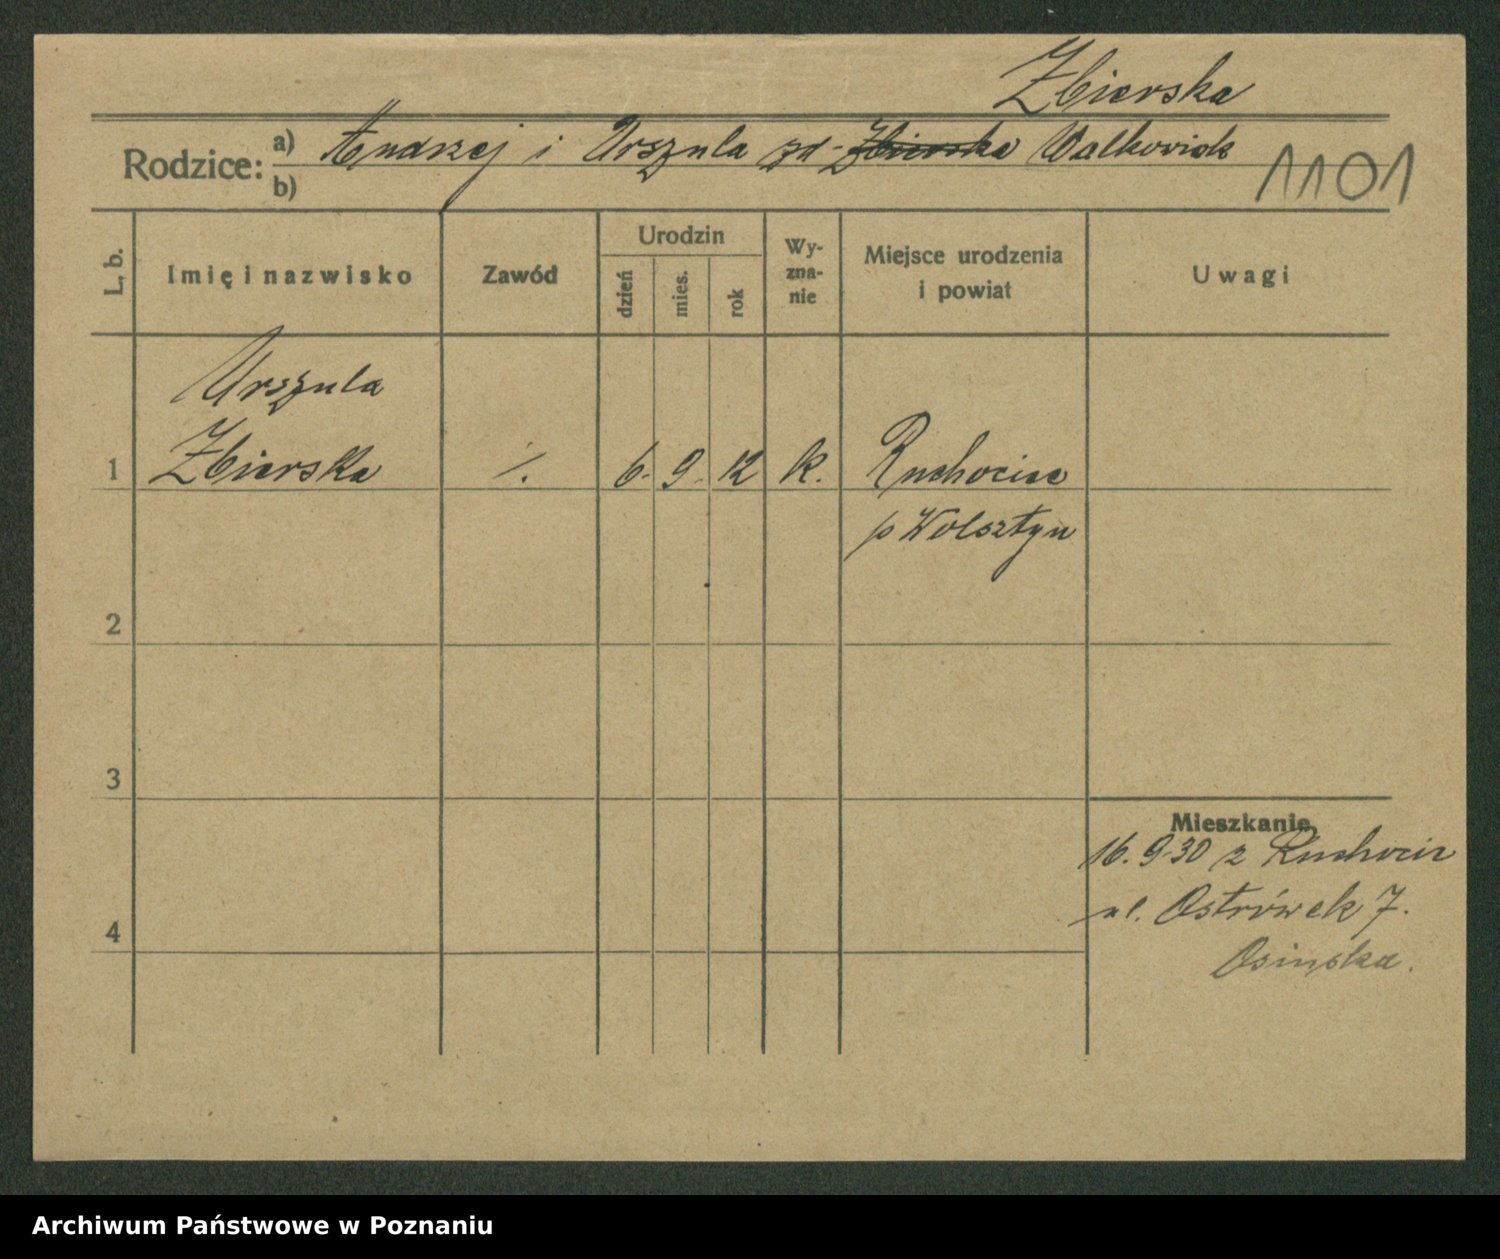 Zbierska
Rodzice: a) Andrzej i Urszula zd - Zbierska Walkowiak
b)
1101
L. b. Imię i nazwisko Zawód Urodzin dzień mies. rok Wy-zna-nie Miejsce urodzenia i powiat Uwagi
Urszula
1 Zbierska /. 6. 9. 12 k. Ruchocice
p Wolsztyn
2
3
Mieszkanie
16. 9. 30 z Ruchocic
ul. Ostrówek 7.
4
Osinska.
Archiwum Państwowe w Poznaniu